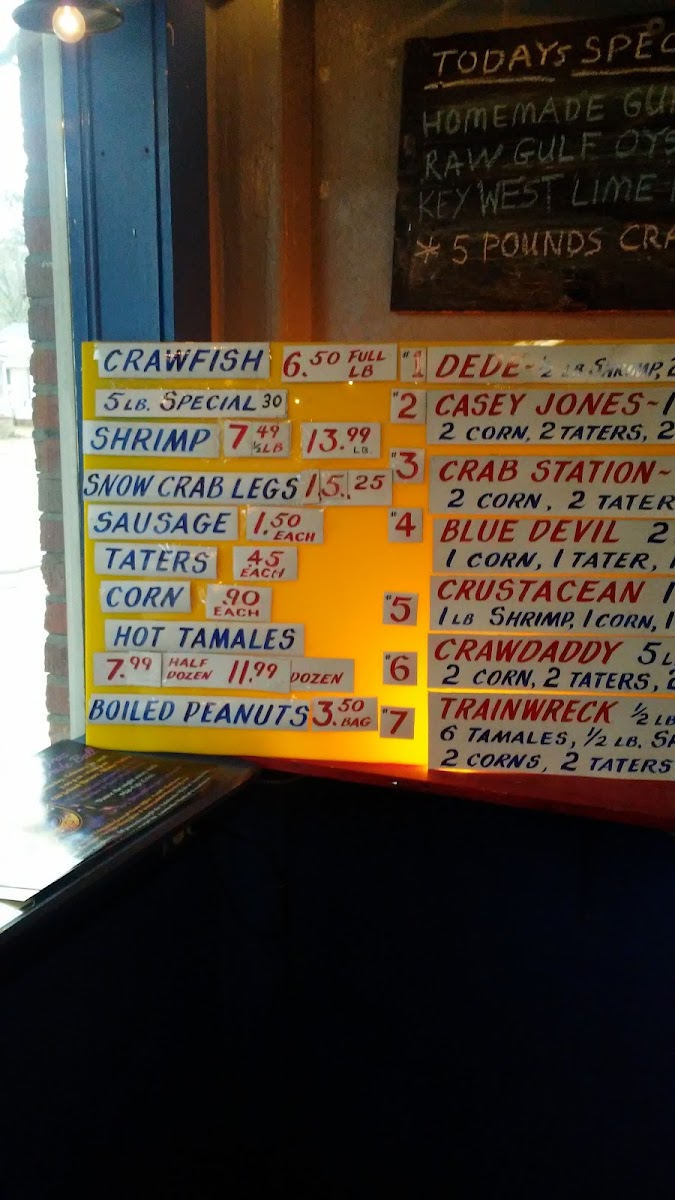 TODAYS SPEC
HOMEMADE GU
RAW GULF OYS
KEY WEST LIME
* 5 POUNDS CRA
CRAWFISH 6.50 FULL LB
5 LB. SPECIAL 30
SHRIMP 7.49 ½LB 13.99 LB.
SNOW CRAB LEGS 15.25
SAUSAGE 1.50 EACH
TATERS .45 EACH
CORN .90 EACH
HOT TAMALES
7.99 HALF DOZEN 11.99 DOZEN
BOILED PEANUTS 3.50 BAG
#1 DEDE~½ LB. SHRIMP, 2
#2 CASEY JONES~1
2 CORN, 2 TATERS, 2
#3 CRAB STATION~
2 CORN, 2 TATER
#4 BLUE DEVIL 2
1 CORN, 1 TATER, 1
#5 CRUSTACEAN 1
1 LB SHRIMP, 1 CORN, 1
#6 CRAWDADDY 5 L
2 CORN, 2 TATERS, 2
#7 TRAINWRECK ½ LB
6 TAMALES, ½ LB. SH
2 CORNS, 2 TATERS